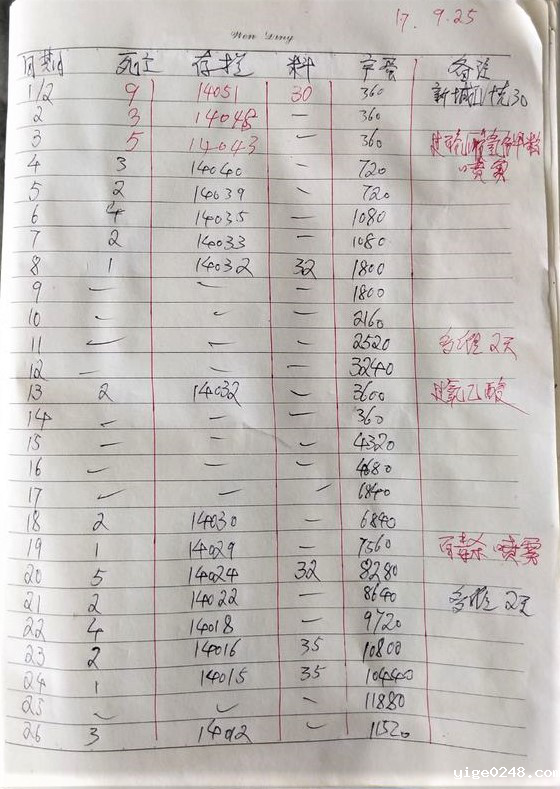 17. 9. 25
日期 死亡 存栏 料 产蛋 备注
1/2 9 14051 30 360 新城 30
2 3 14048 — 360
3 5 14043 — 360
4 3 14040 — 720 喷雾
5 2 14039 — 720
6 4 14035 — 1080
7 2 14033 — 1080
8 1 14032 32 1800
9 — — — 1800
10 — — — 2160
11 — — — 2520 多维 2天
12 — — — 3240
13 2 14032 — 3600 过氧乙酸
14 — — — 360
15 — — — 4320
16 — — — 4680
17 — — — 6840
18 2 14030 — 6840
19 1 14029 — 7560 百毒杀 喷雾
20 5 14024 32 8280
21 2 14022 — 8640 多维 2天
22 4 14018 — 9720
23 2 14016 35 10800
24 1 14015 35 10440
25 — — — 11880
26 3 14012 — 11520
yige0248.com